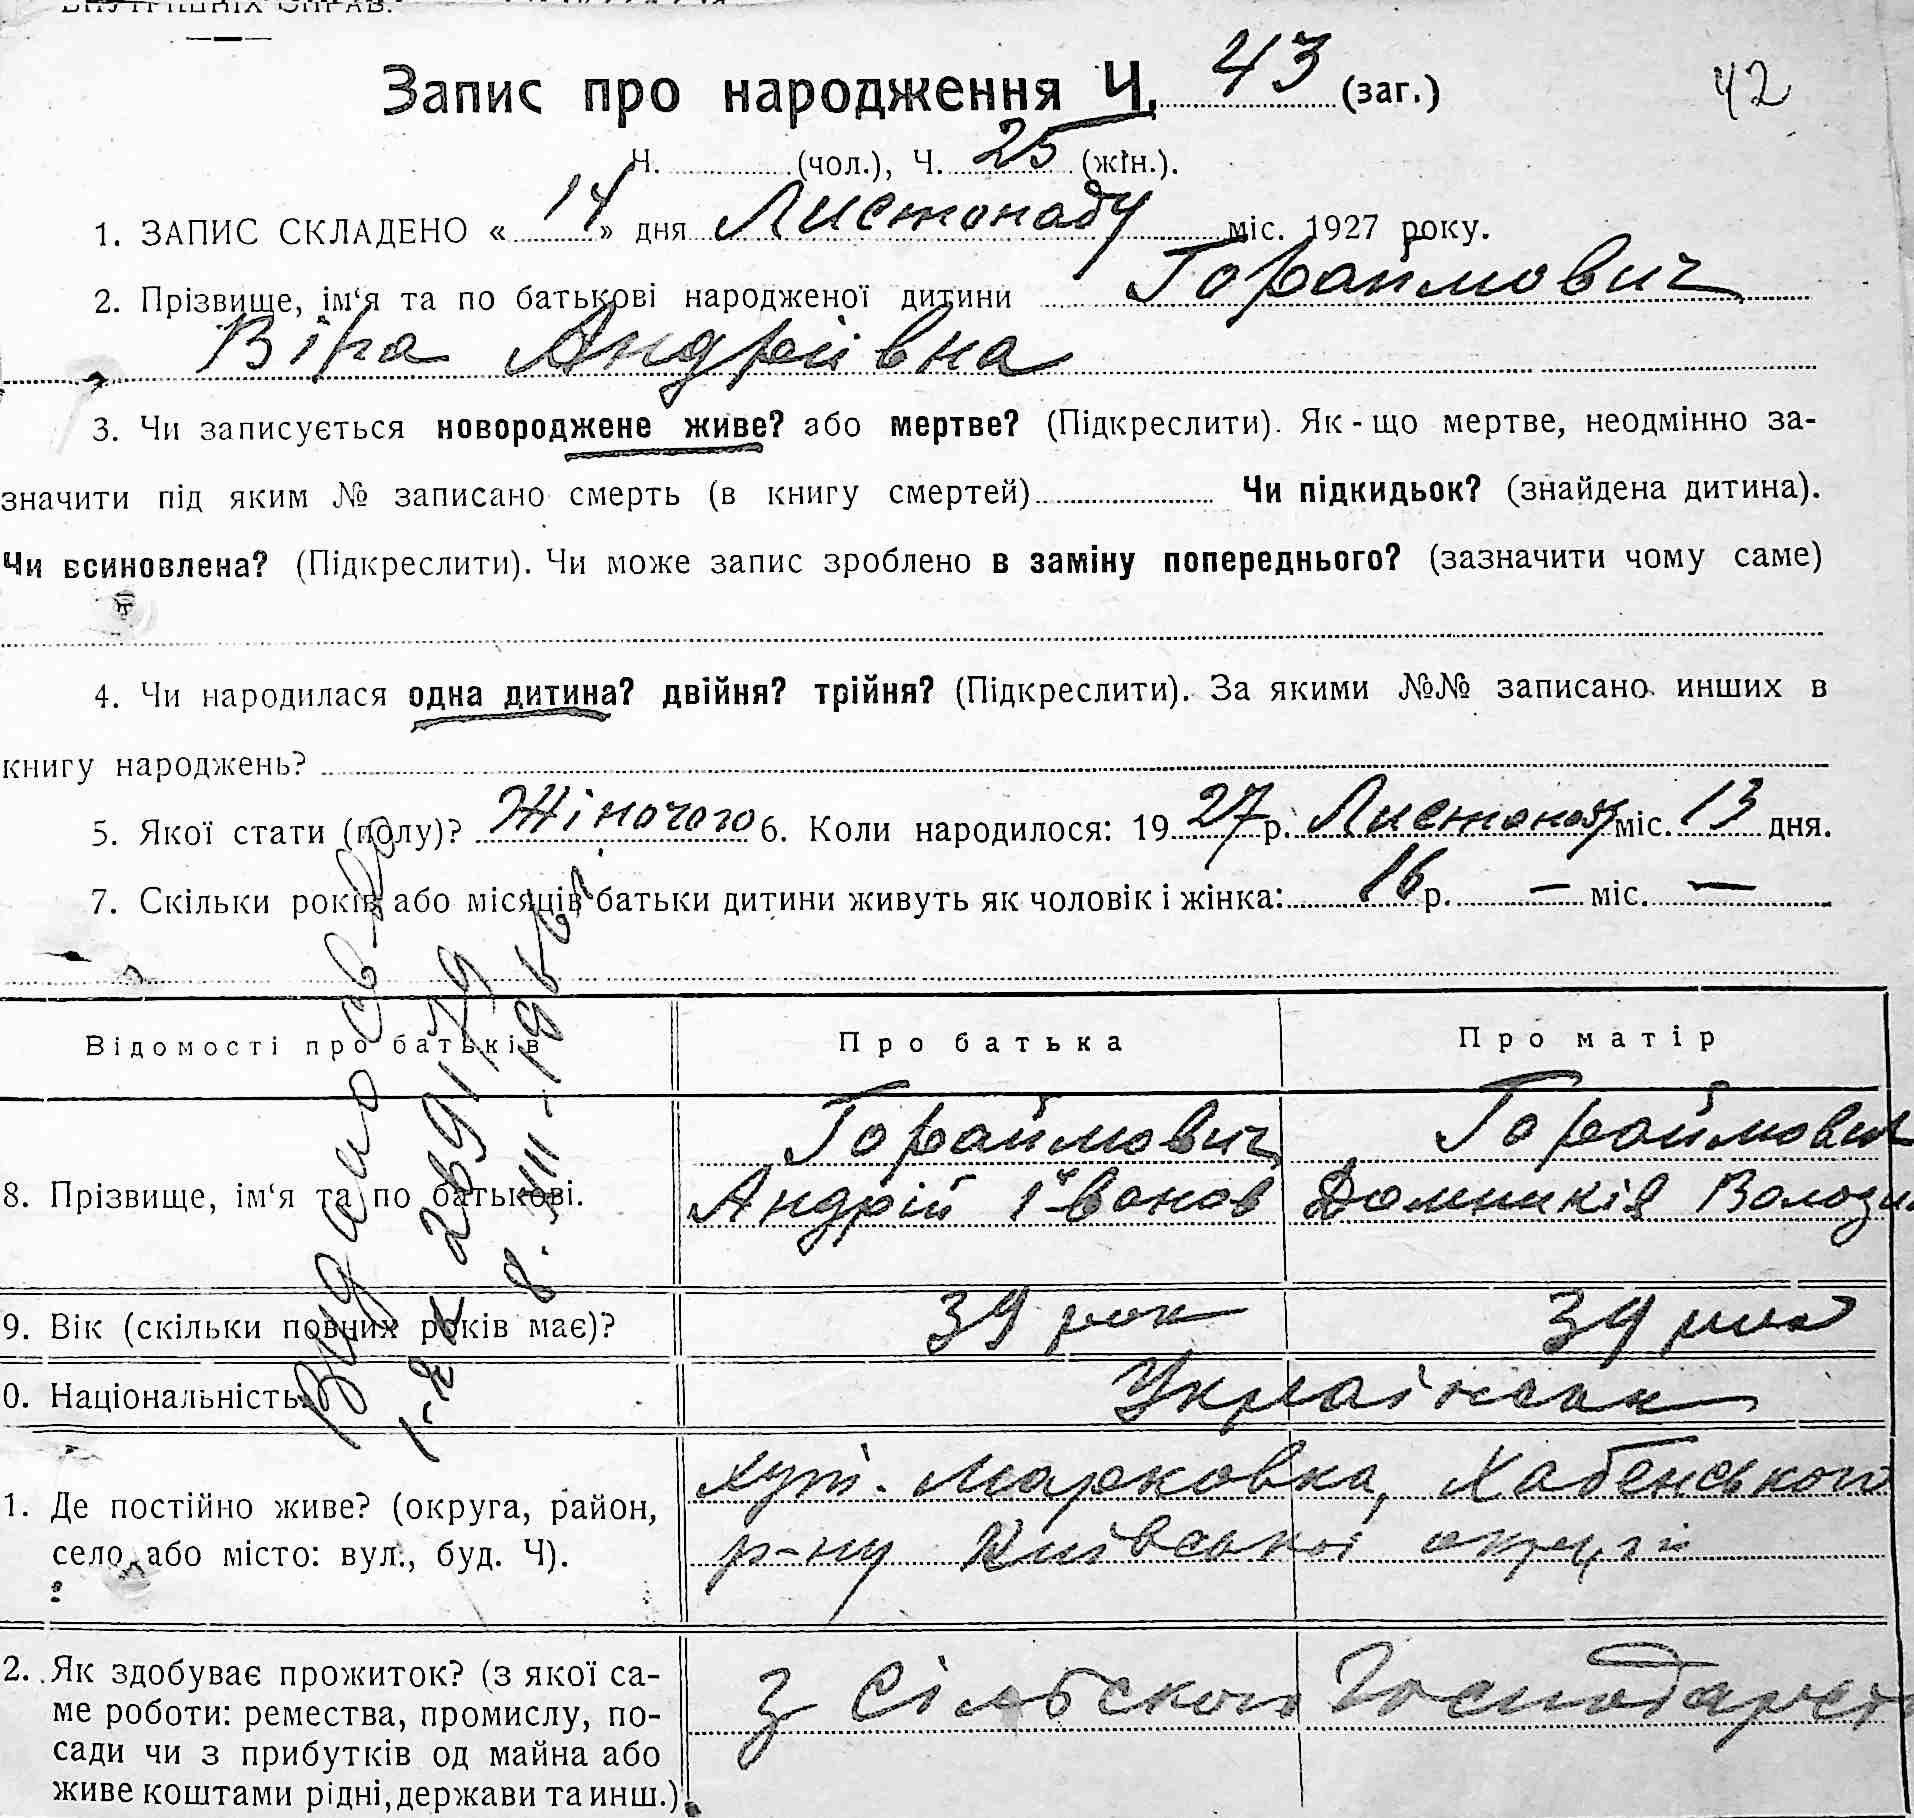 ВНУТРІШНІХ СПРАВ.
Запис про народження Ч. 43 (заг.)
42
Ч. (чол.), Ч. 25 (жін.).
1. ЗАПИС СКЛАДЕНО « 14 » дня Листопаду міс. 1927 року.
2. Прізвище, ім‘я та по батькові народженої дитини Гораймович
Віра Андріївна
3. Чи записується новороджене живе? або мертве? (Підкреслити). Як-що мертве, неодмінно за-
значити під яким № записано смерть (в книгу смертей) Чи підкидьок? (знайдена дитина).
Чи всиновлена? (Підкреслити). Чи може запис зроблено в заміну попереднього? (зазначити чому саме)
4. Чи народилася одна дитина? двійня? трійня? (Підкреслити). За якими №№ записано инших в
книгу народжень?
5. Якої стати (полу)? Жіночого 6. Коли народилося: 19 27 р. Листопаду міс. 13 дня.
7. Скільки років або місяців батьки дитини живуть як чоловік і жінка: 16 р. — міс. —
Відомості про батьків Про батька Про матір
Гораймович Гораймович
8. Прізвище, ім‘я та по батькові. Андрій Іванов Домникія
9. Вік (скільки повних років має)? 39 рок 39
0. Національність. Українськ
хут. Марковка, Хабенського
1. Де постійно живе? (округа, район,
село або місто: вул., буд. Ч). р-ну Київської округи
2. Як здобуває прожиток? (з якої са-
ме роботи: ремества, промислу, по- З Сільського Господарст
сади чи з прибутків од майна або
живе коштами рідні, держави та инш.)
Видано св-во